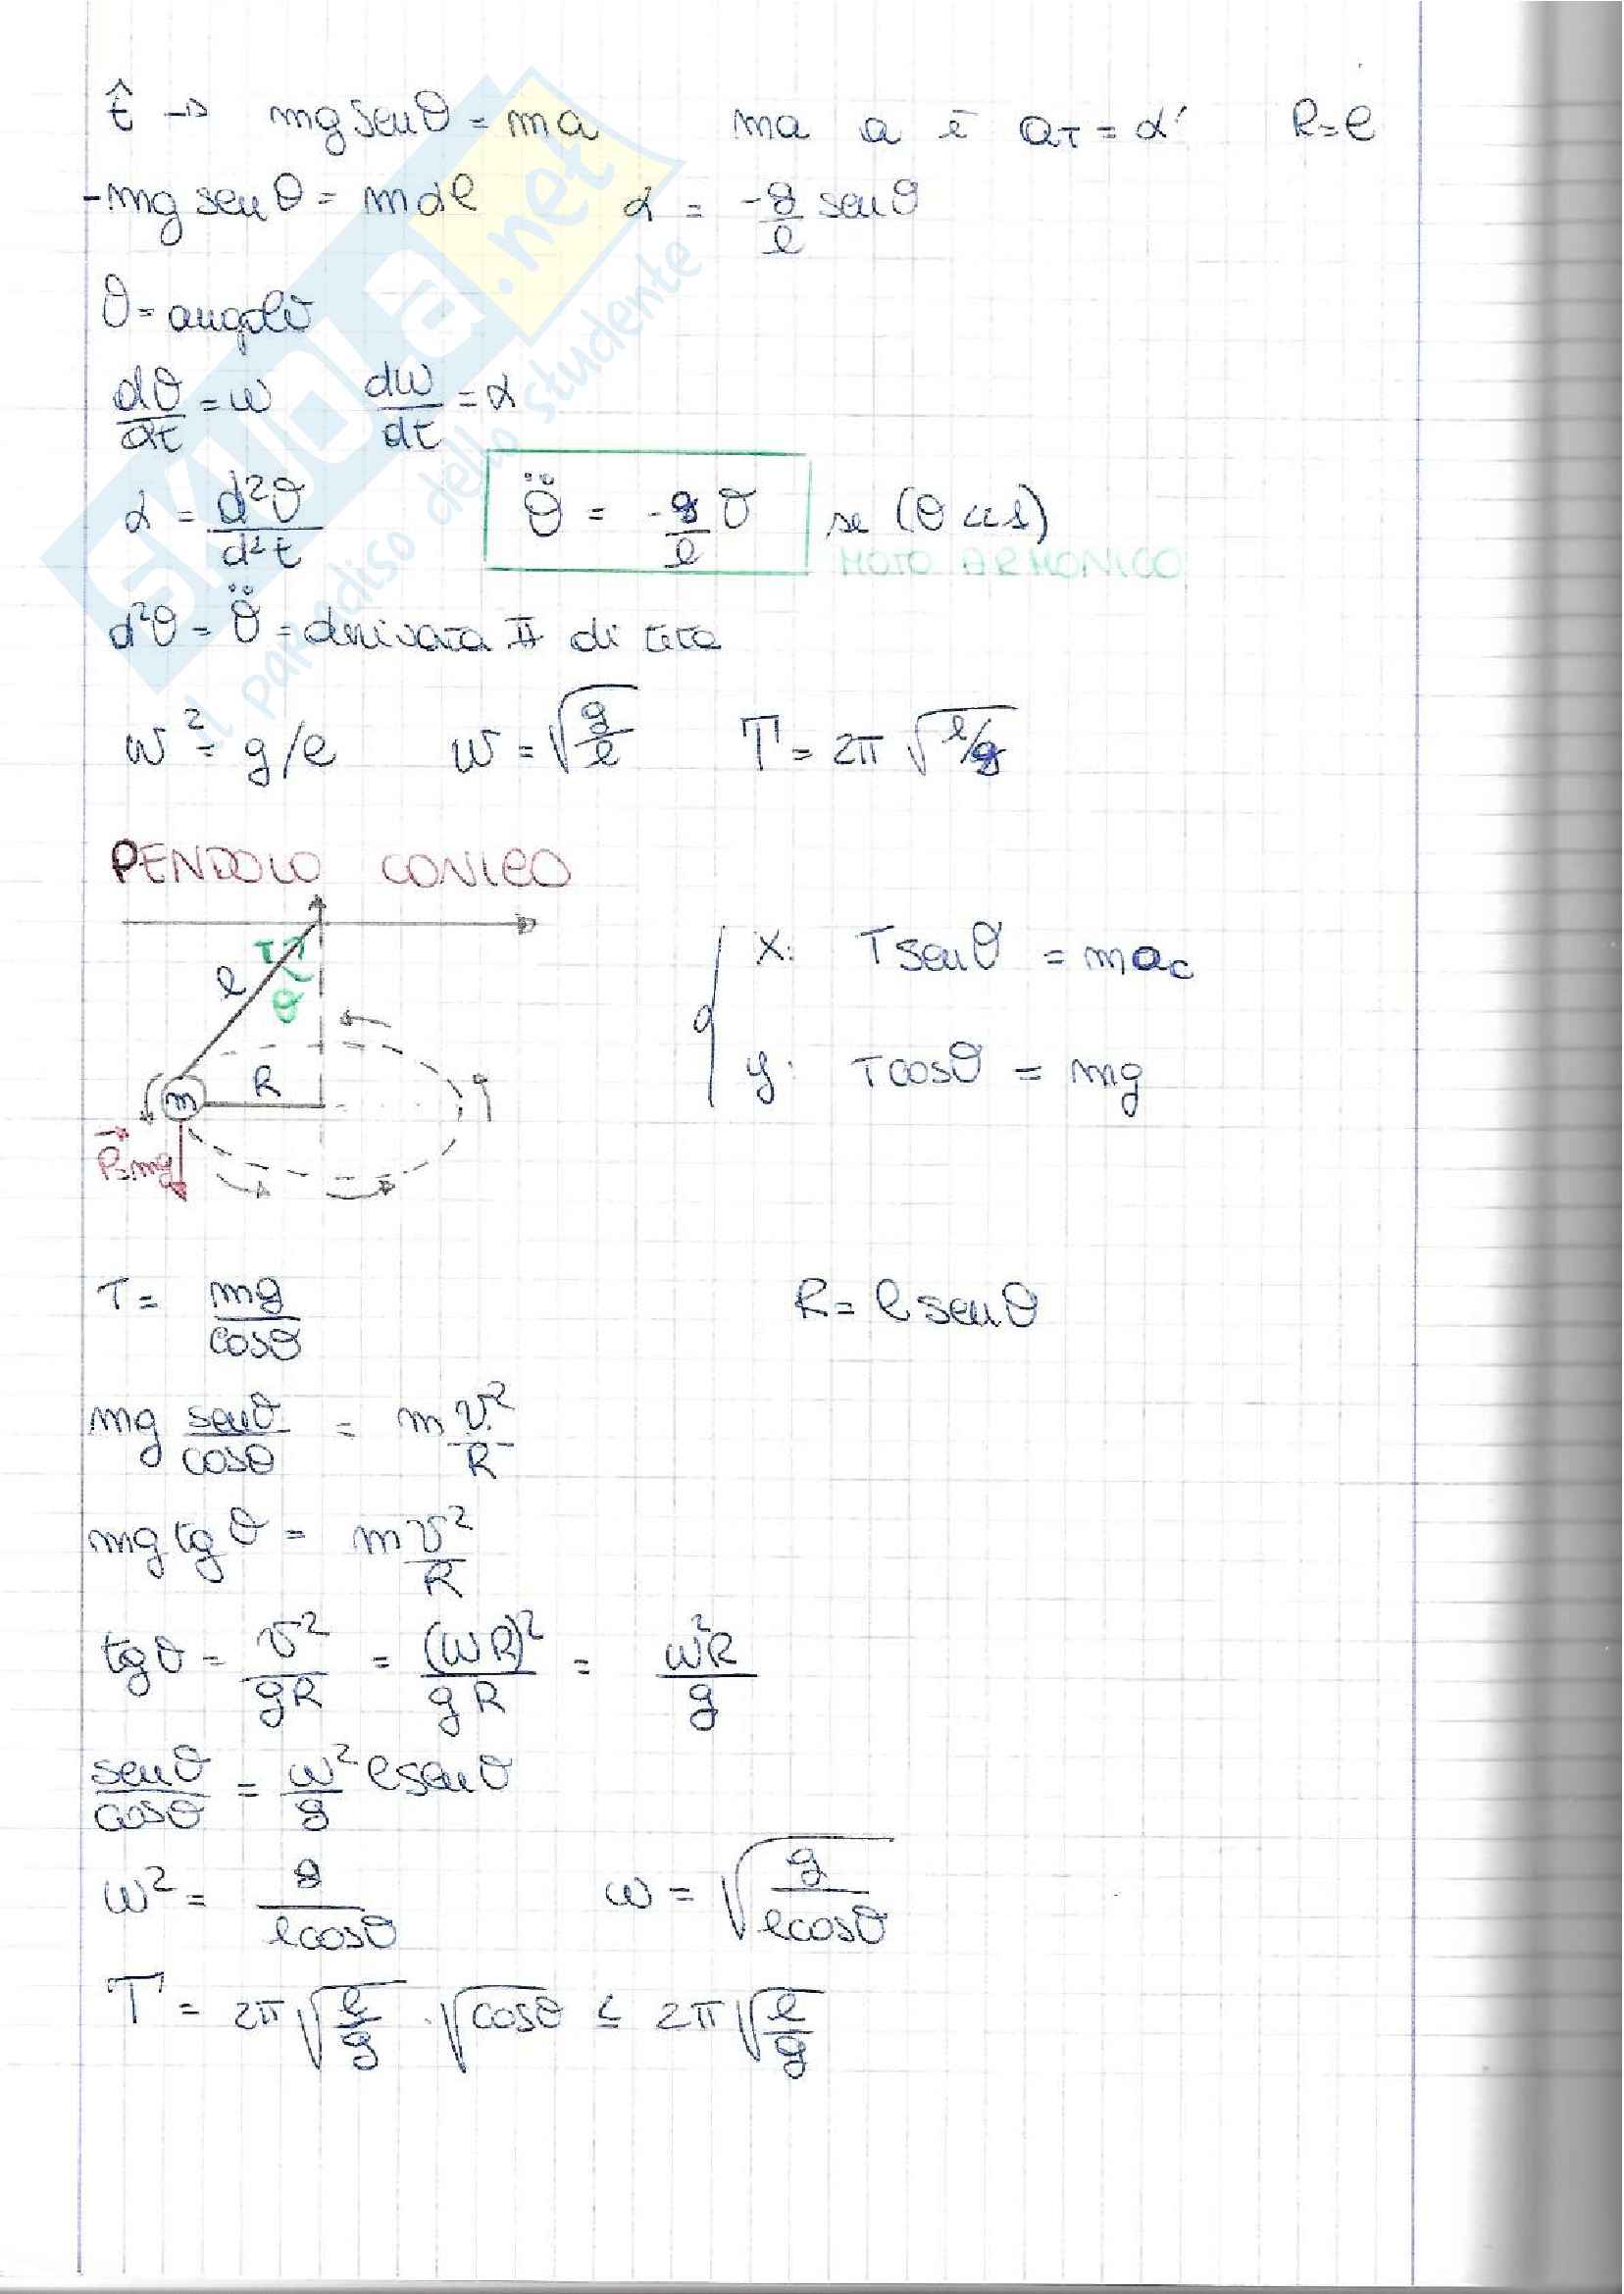 t̂ → mg senθ = ma   ma a è aT = α'   R = l
-mg senθ = mαl   α = -g/l senθ
θ = angolo
dθ/dt = ω   dω/dt = α
α = d²θ/d²t   θ̈ = -g/l θ   se (θ << 1)
MOTO ARMONICO
d²θ = θ̈ = derivata II di teta
ω² = g/l   ω = √(g/l)   T = 2π √(l/g)
PENDOLO CONICO
T
l
θ
R
m
P = mg
x: T senθ = mac
y: T cosθ = mg
T = mg/cosθ   R = l senθ
mg senθ/cosθ = m v²/R
mg tg θ = m v²/R
tgθ = v²/gR = (ωR)²/gR = ω²R/g
senθ/cosθ = ω²/g l senθ
ω² = g/l cosθ   ω = √(g/l cosθ)
T = 2π √(l/g) · √cosθ ≤ 2π √(l/g)
SKUOLA.net
il paradiso dello studente